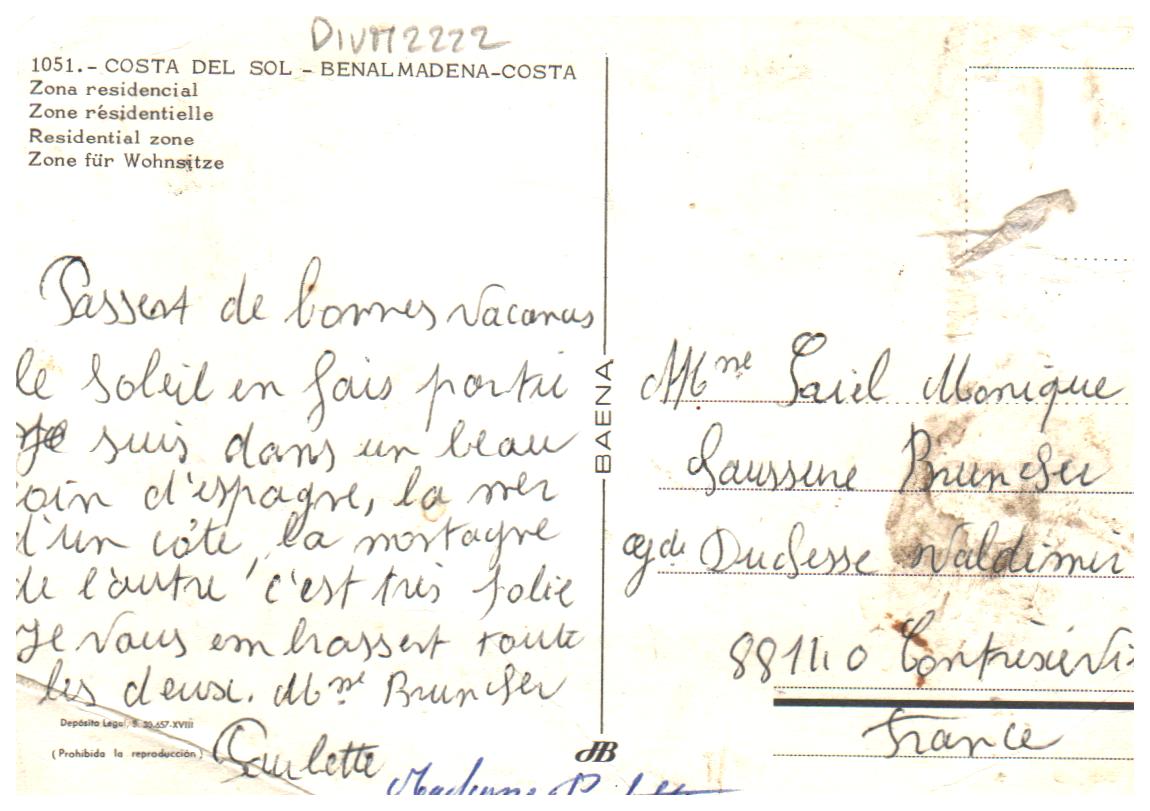 DIVM2222
1051.- COSTA DEL SOL - BENALMADENA-COSTA
Zona residencial
Zone résidentielle
Residential zone
Zone für Wohnsitze
Passent de bonnes vacances
le soleil en fais partie
Je suis dans un beau
coin d'espagne, la mer
d'un côté, la montagne
de l'autre, c'est très jolie
Je vous embrassent toute
les deux. Mme Buncher
Paulette
Depósito Legal, B. 30.657-XVIII
(Prohibida la reproducción)
BAENA
Mme Monique
Bruncher
Duchesse Waldimir
88140 Contrexévi
France
Madame